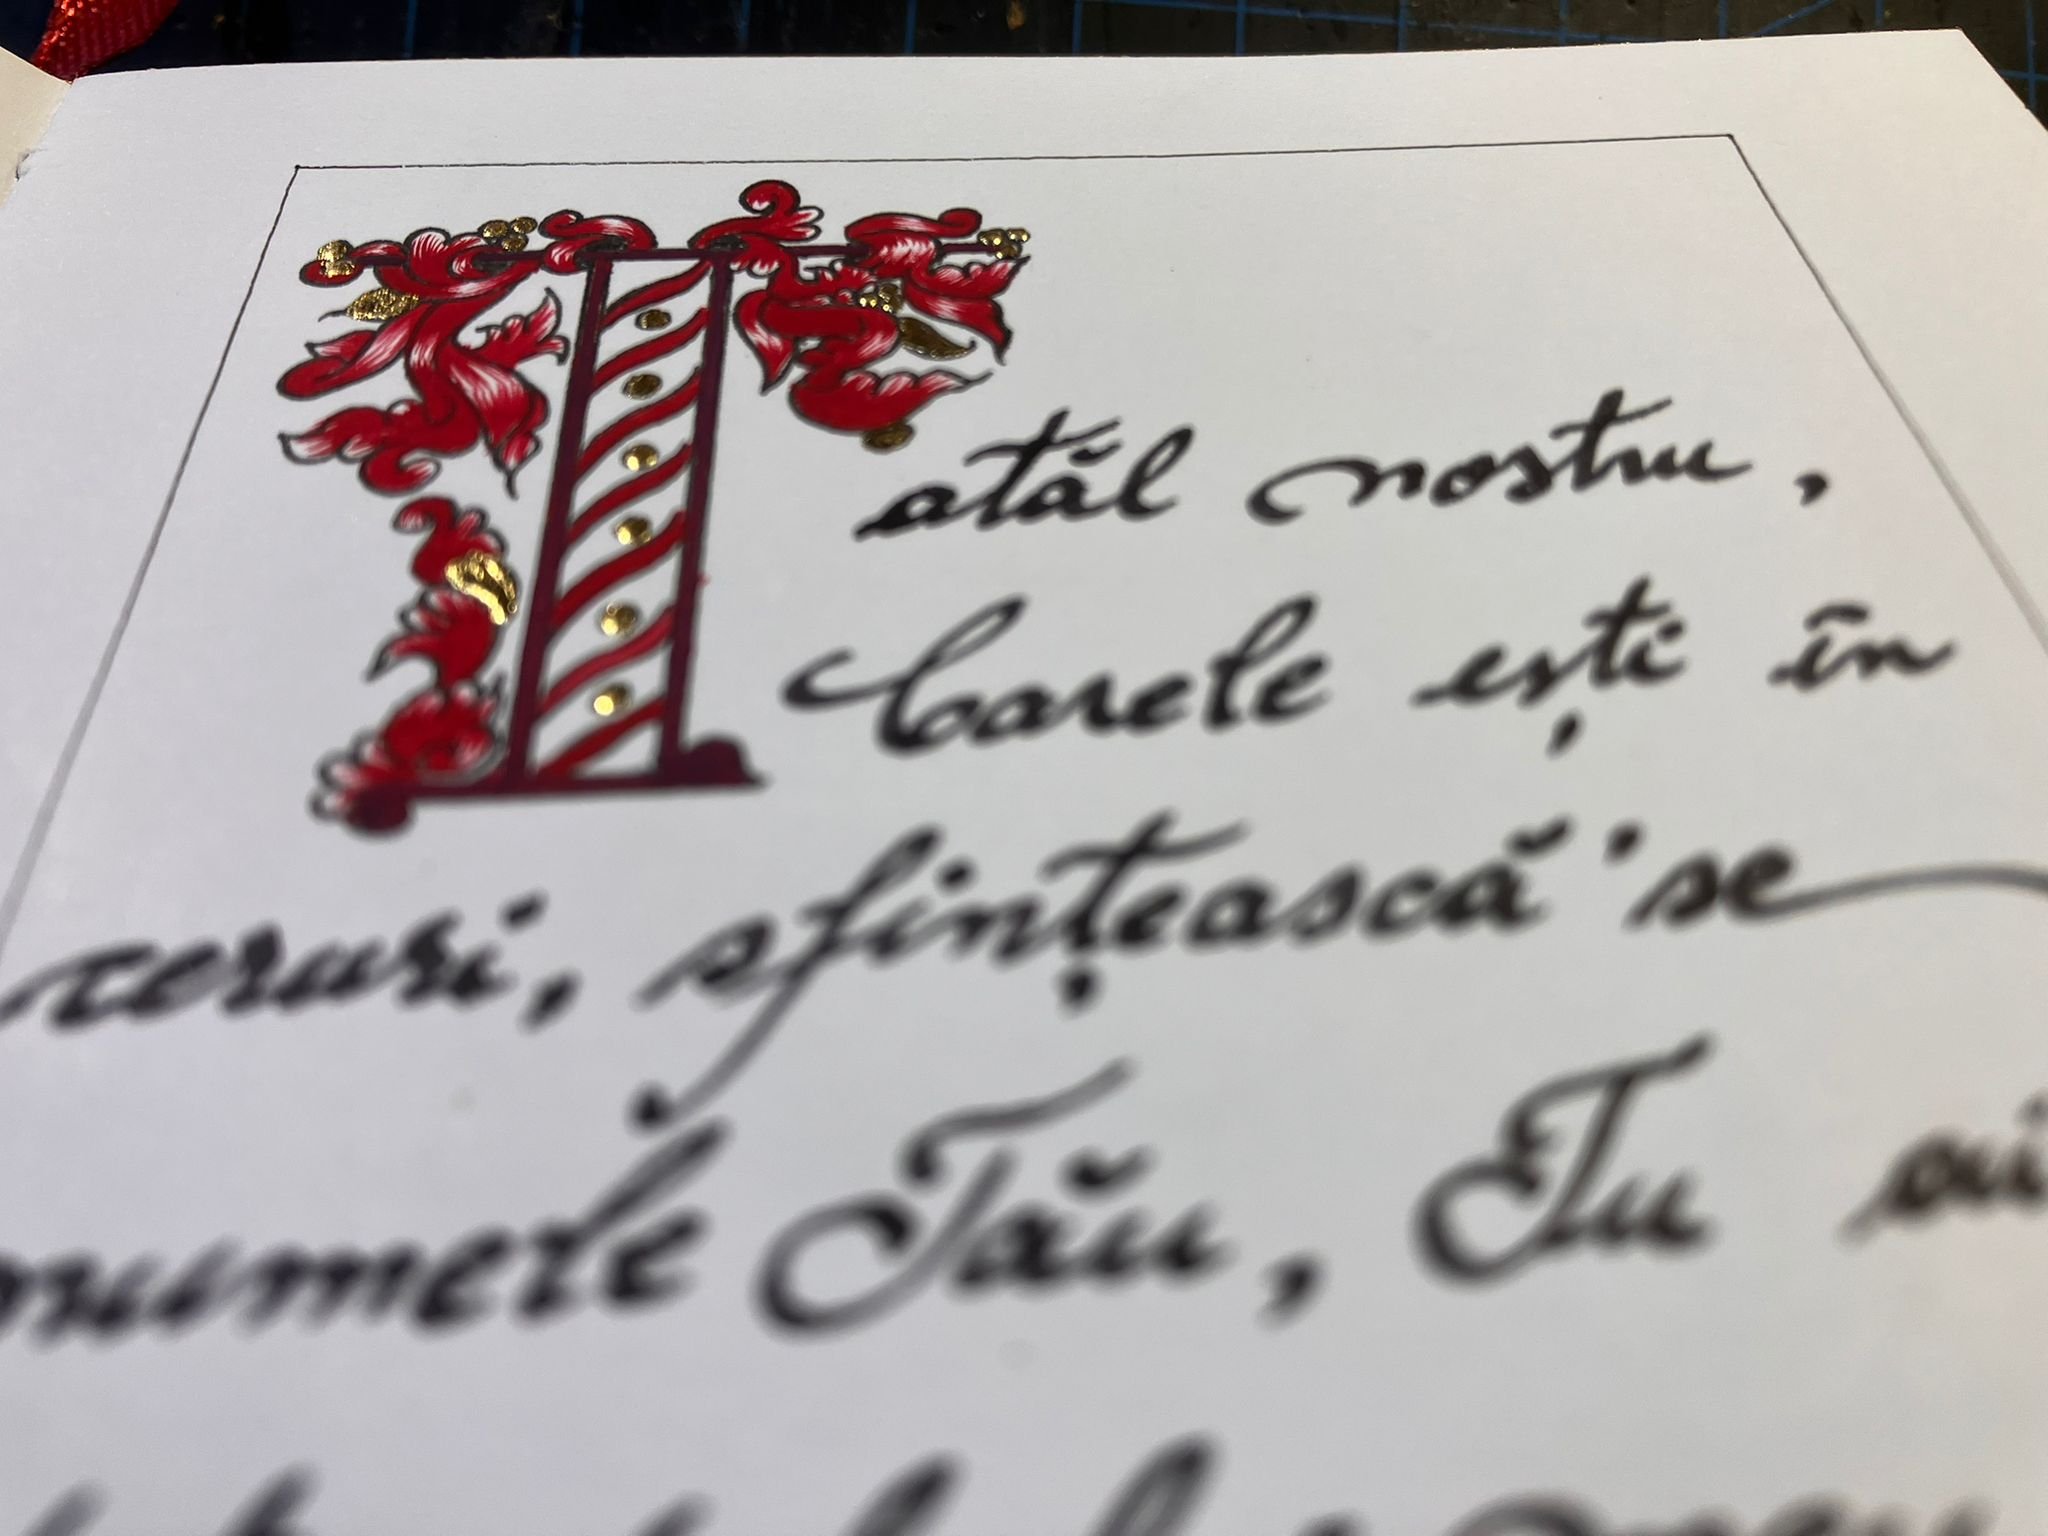 Tatăl nostru,
Carele ești în
ceruri, sfințească-se
numele Tău, Tu